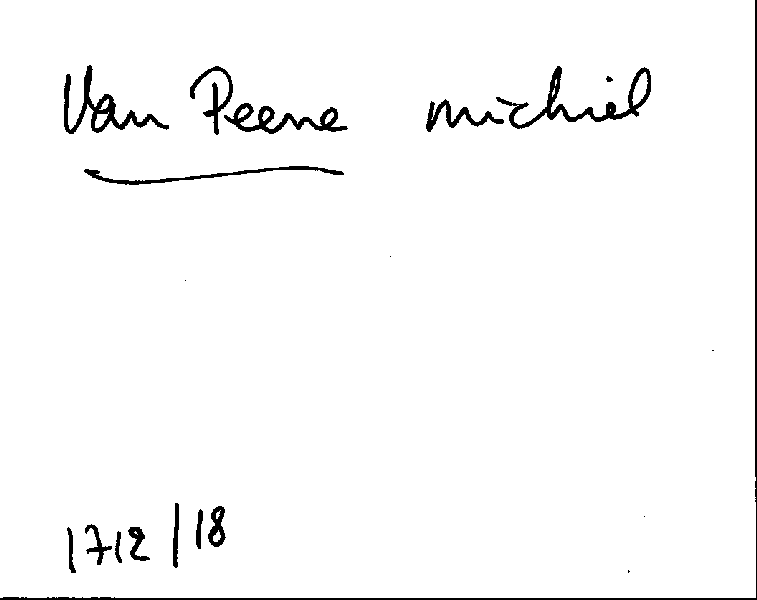 Van Peene michiel
1712/18